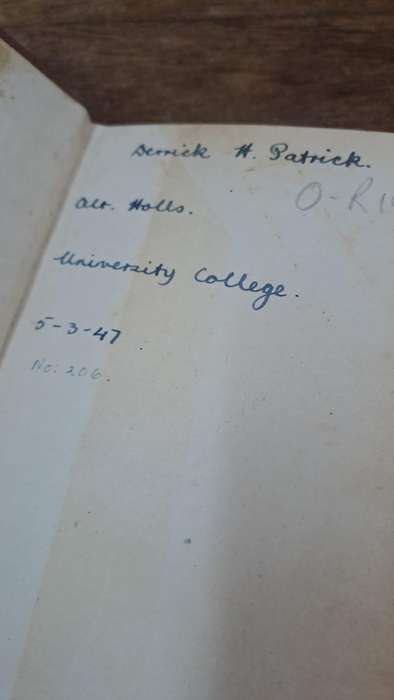 Derrick H. Patrick.
O-R
Alt. Halls.
University College.
5-3-47
No: 206.